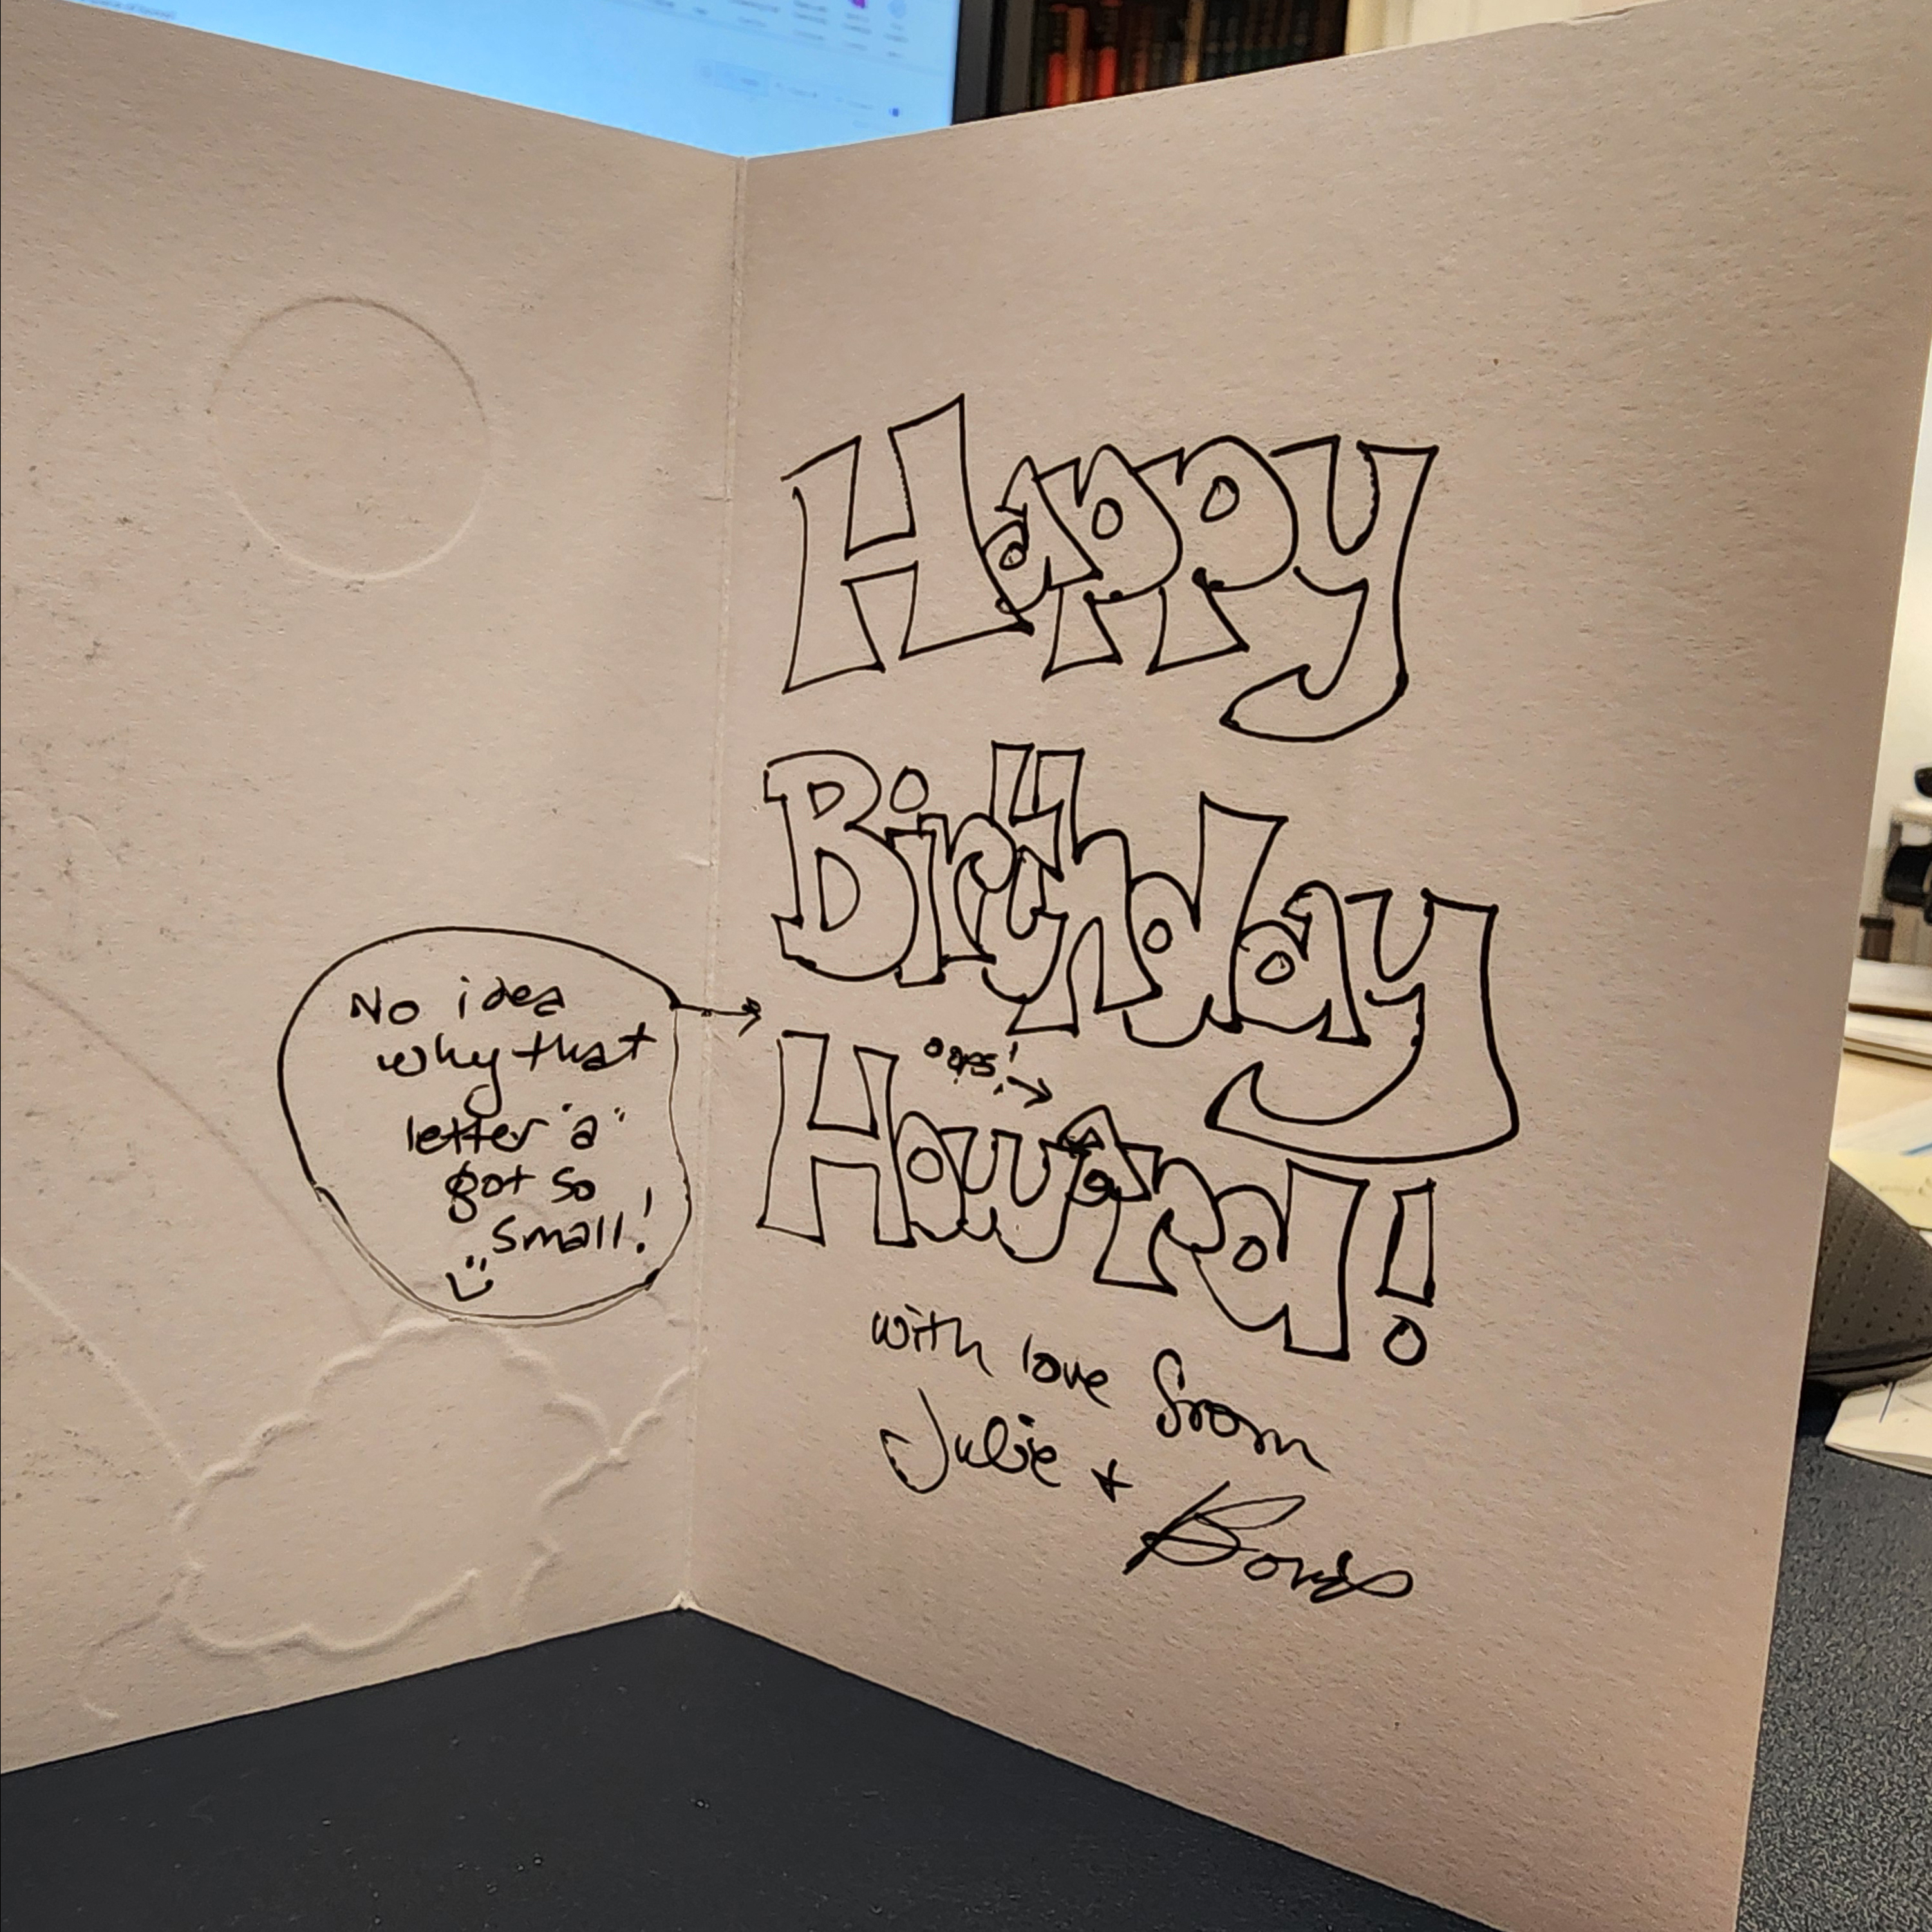 No idea
why that
letter "a"
got so
small!
Happy
Birthday
oops!
Howard!
with love from
Julie +
Boris